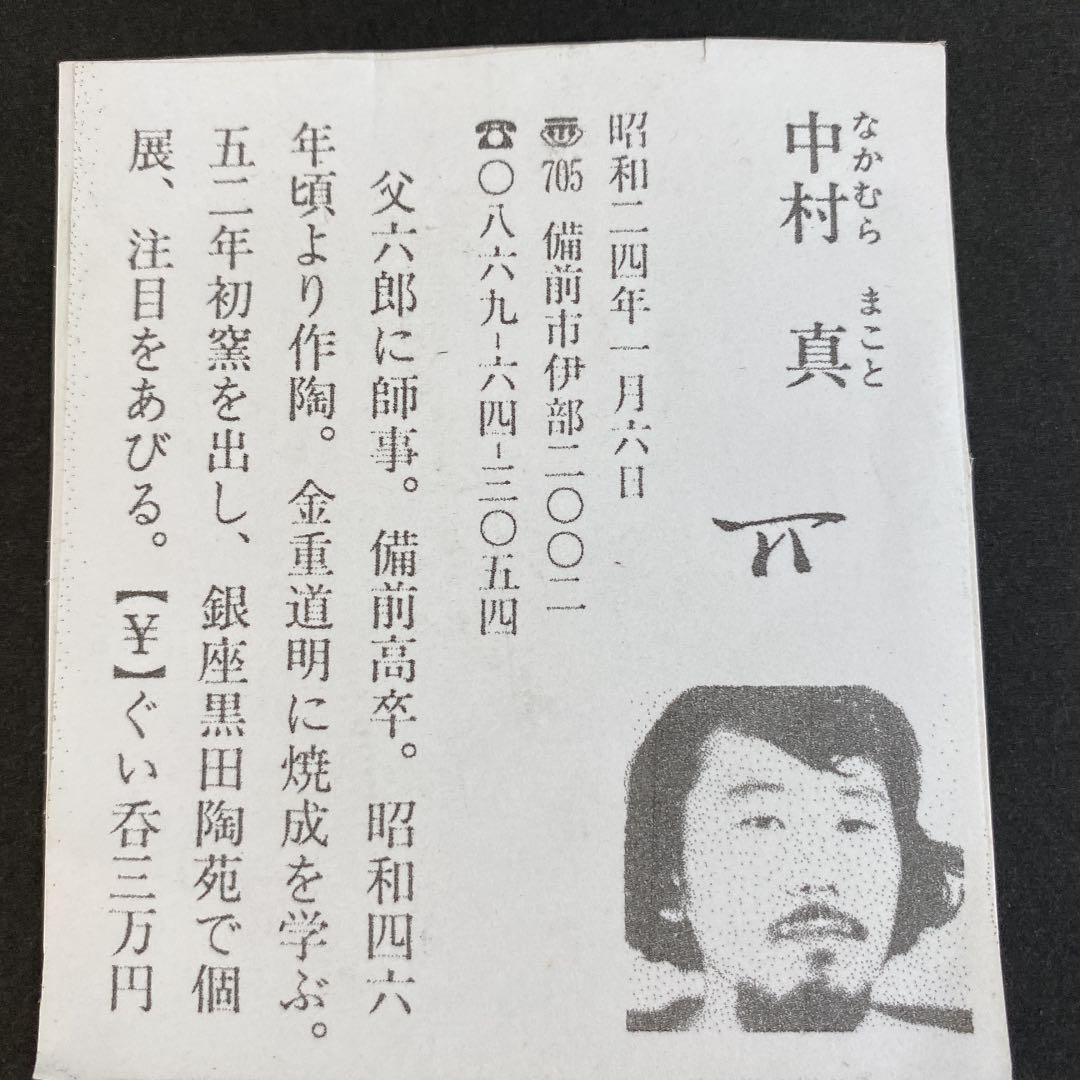 なかむら まこと
中村 真
昭和二四年一月六日
〠705 備前市伊部二〇〇二
☎〇八六九-六四-三〇五四
父六郎に師事。備前高卒。昭和四六
年頃より作陶。金重道明に焼成を学ぶ。
五二年初窯を出し、銀座黒田陶苑で個
展、注目をあびる。【¥】ぐい呑三万円